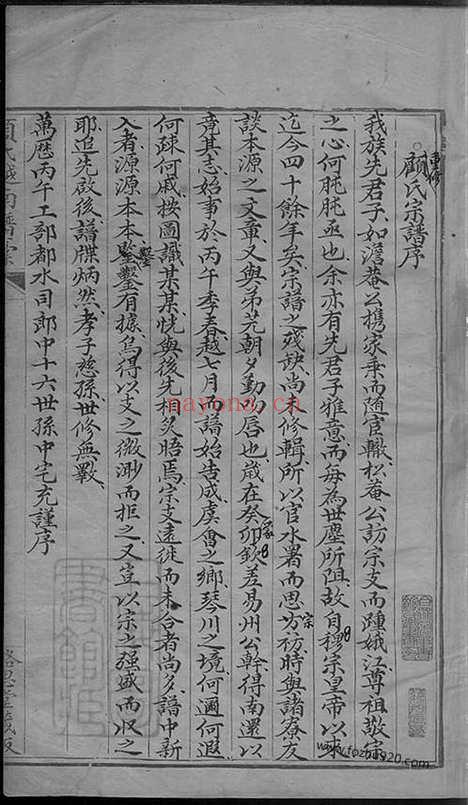 重修
顧氏宗譜序
我族先君子如澹菴公携家乗而随官轍松菴公訪宗支而踵娥江尊祖敬宗
之心何肫肫丞也余亦有先君子雅意而每為世塵所阻故自穆宗皇帝以來
迄今四十餘年矣宗譜之殘缺尚未修輯所以官水署而思宗祊時與諸寮友
談本源之文董又與弟兄朝夕勤勉唇也歲在癸卯欽差易州公幹得南還以
竟其志始事於丙午季春越七月而譜始告成虞會之鄉琴川之境何適何遐
何疎何戚按圖識某某恍與後先相爻晤焉宗支遠徙而未合者尚多譜中新
入者源源本本鑿鑿有據烏得以支之微渺而拒之又豈以宗之强盛而収之
耶追先啟後譜牒炳然孝子慈孫世修無斁
萬歷丙午工部都水司郎中十六世孫中宅充謹序
顧氏越南譜
nayona.cn
www.fozhu920.com